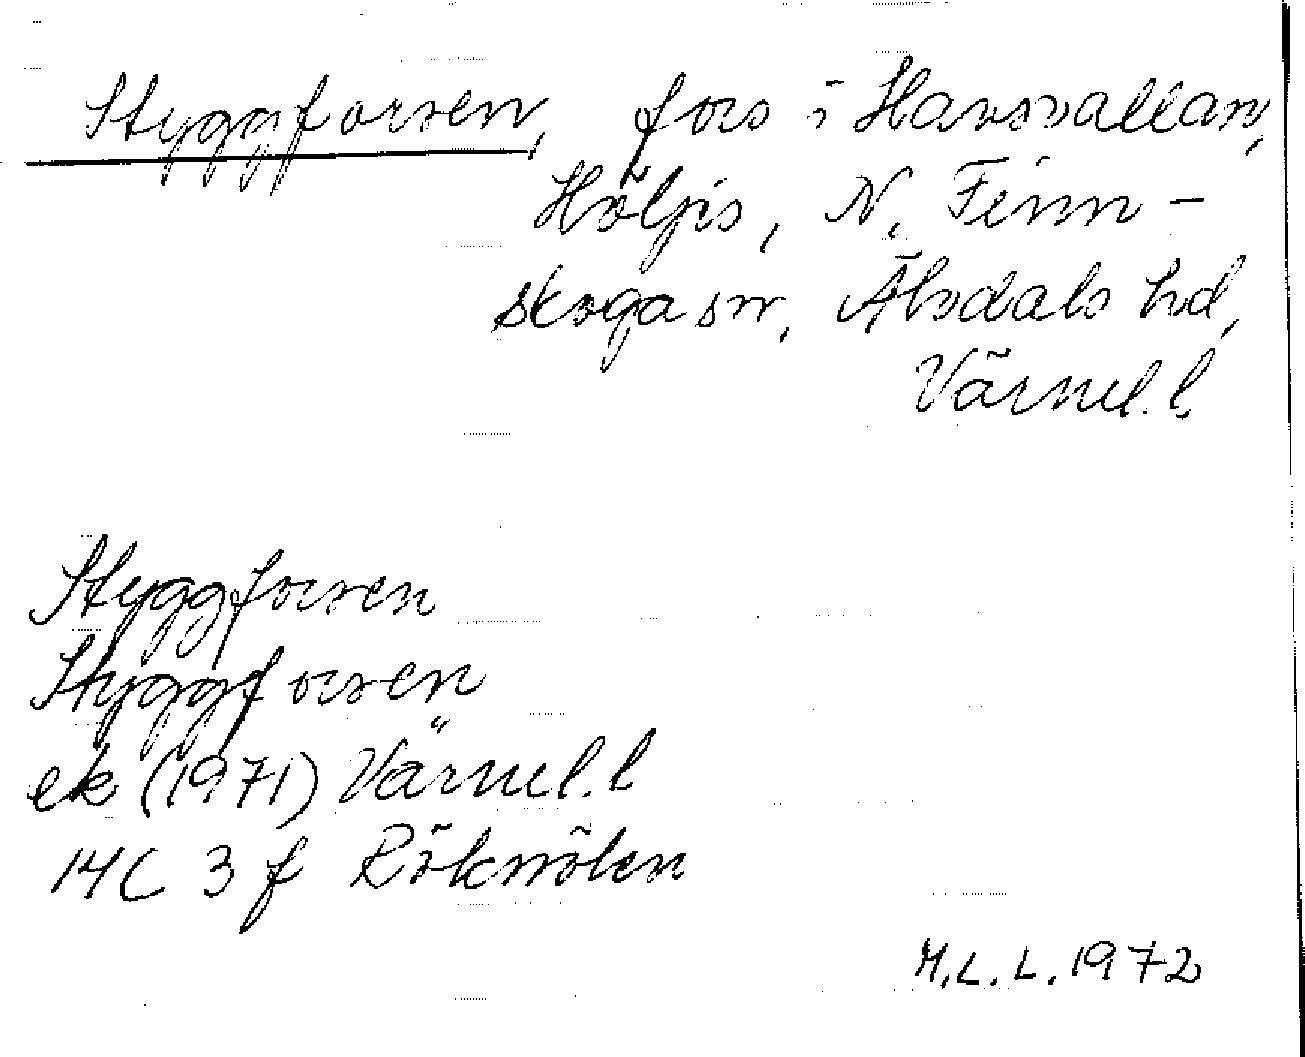 Styggforsen, fors i Havsvallan,
Höljis, N. Finn-
skoga sn, Älvdals hd,
Värml. l.
Styggforsen
Styggforsen
ek (1971) Värml. l
14C 3 f Röknölen
M.L.L. 1972